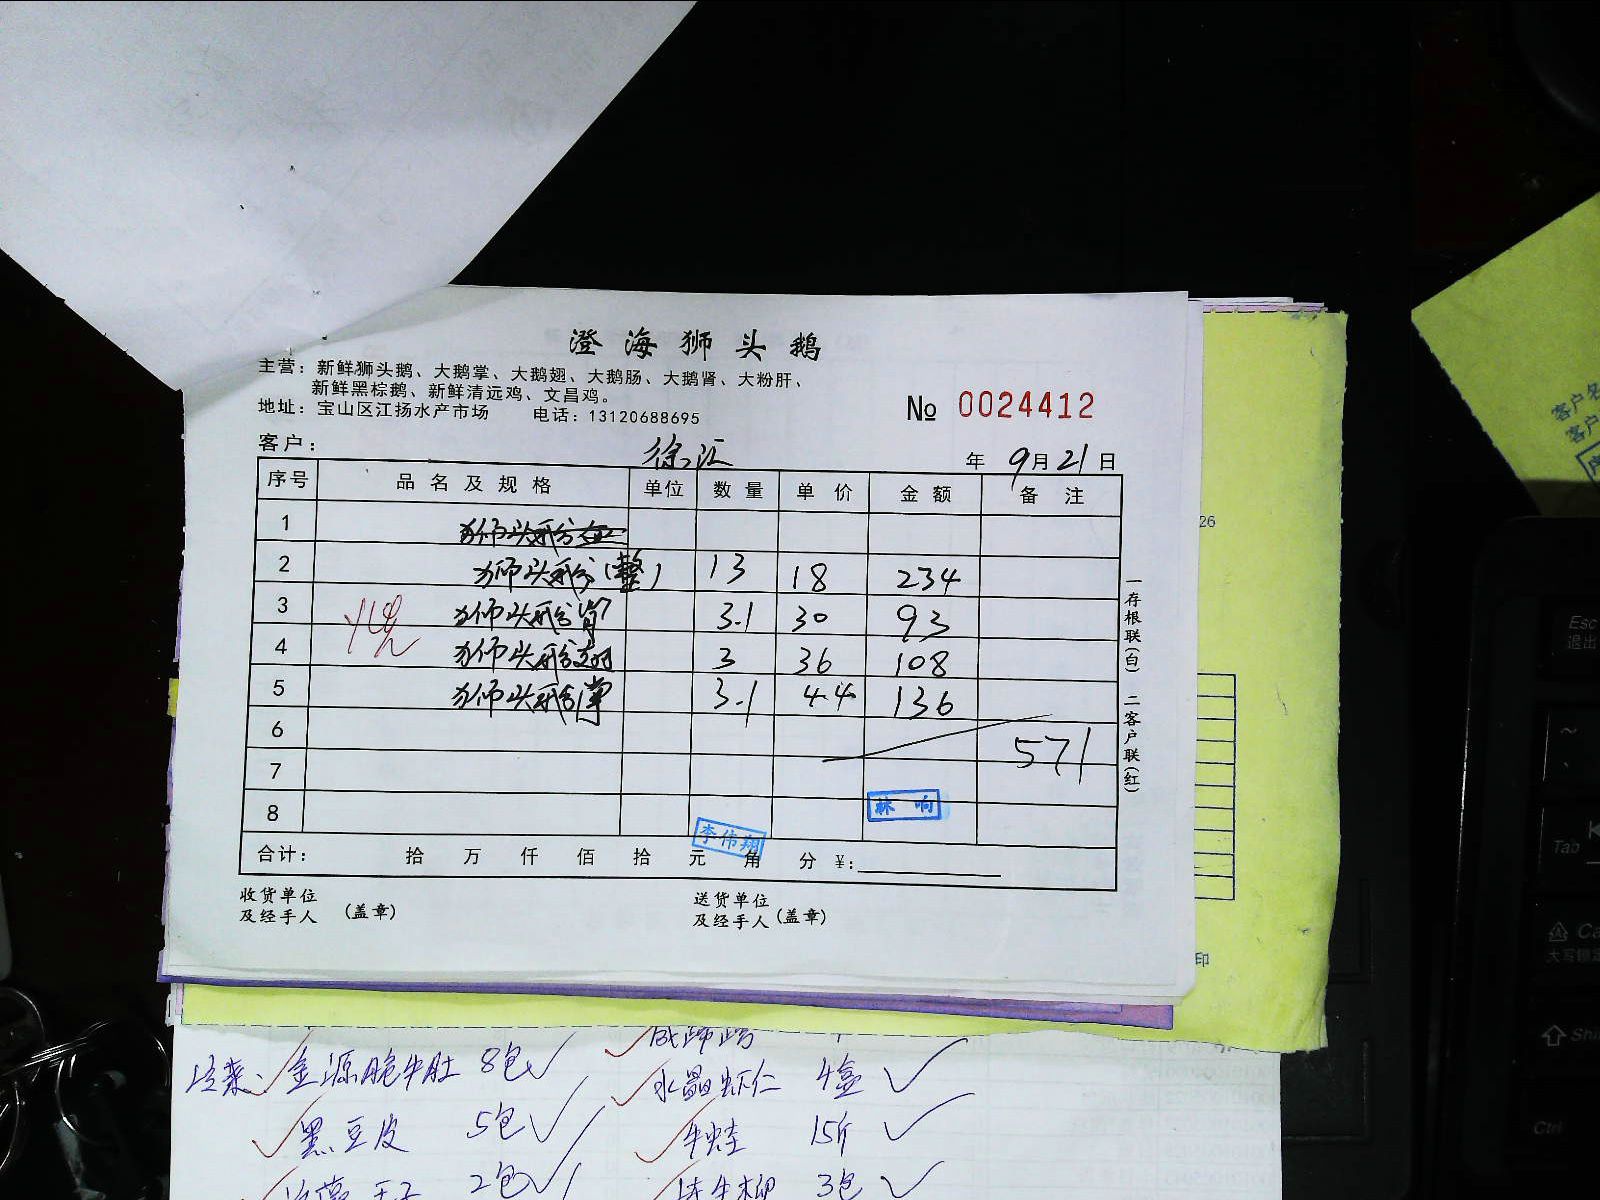 澄海狮头鹅
主营：新鲜狮头鹅、大鹅掌、大鹅翅、大鹅肠、大鹅肾、大粉肝、
新鲜黑棕鹅、新鲜清远鸡、文昌鸡。
地址：宝山区江扬水产市场 电话：13120688695
№ 0024412
客户： 徐汇 年 9月21日
序号 品名及规格 单位 数量 单价 金额 备注
1 狮头鹅
2 狮头鹅(整) 13 18 234
3 狮头鹅肾 3.1 30 93
4 狮头鹅翅 3 36 108
5 狮头鹅掌 3.1 44 136
6 571
7
8
林响
李伟翔
合计： 拾 万 仟 佰 拾 元 角 分 ¥:
收货单位
及经手人 (盖章)
送货单位
及经手人 (盖章)
一存根联(白) 二客户联(红)
26
印
客户名
客户
Esc
退出
Tab
Ca
大写锁定
Shi
Ctrl
金源脆牛肚 8包
水晶虾仁 4盒
黑豆皮 5包
牛蛙 15斤
2包
3包